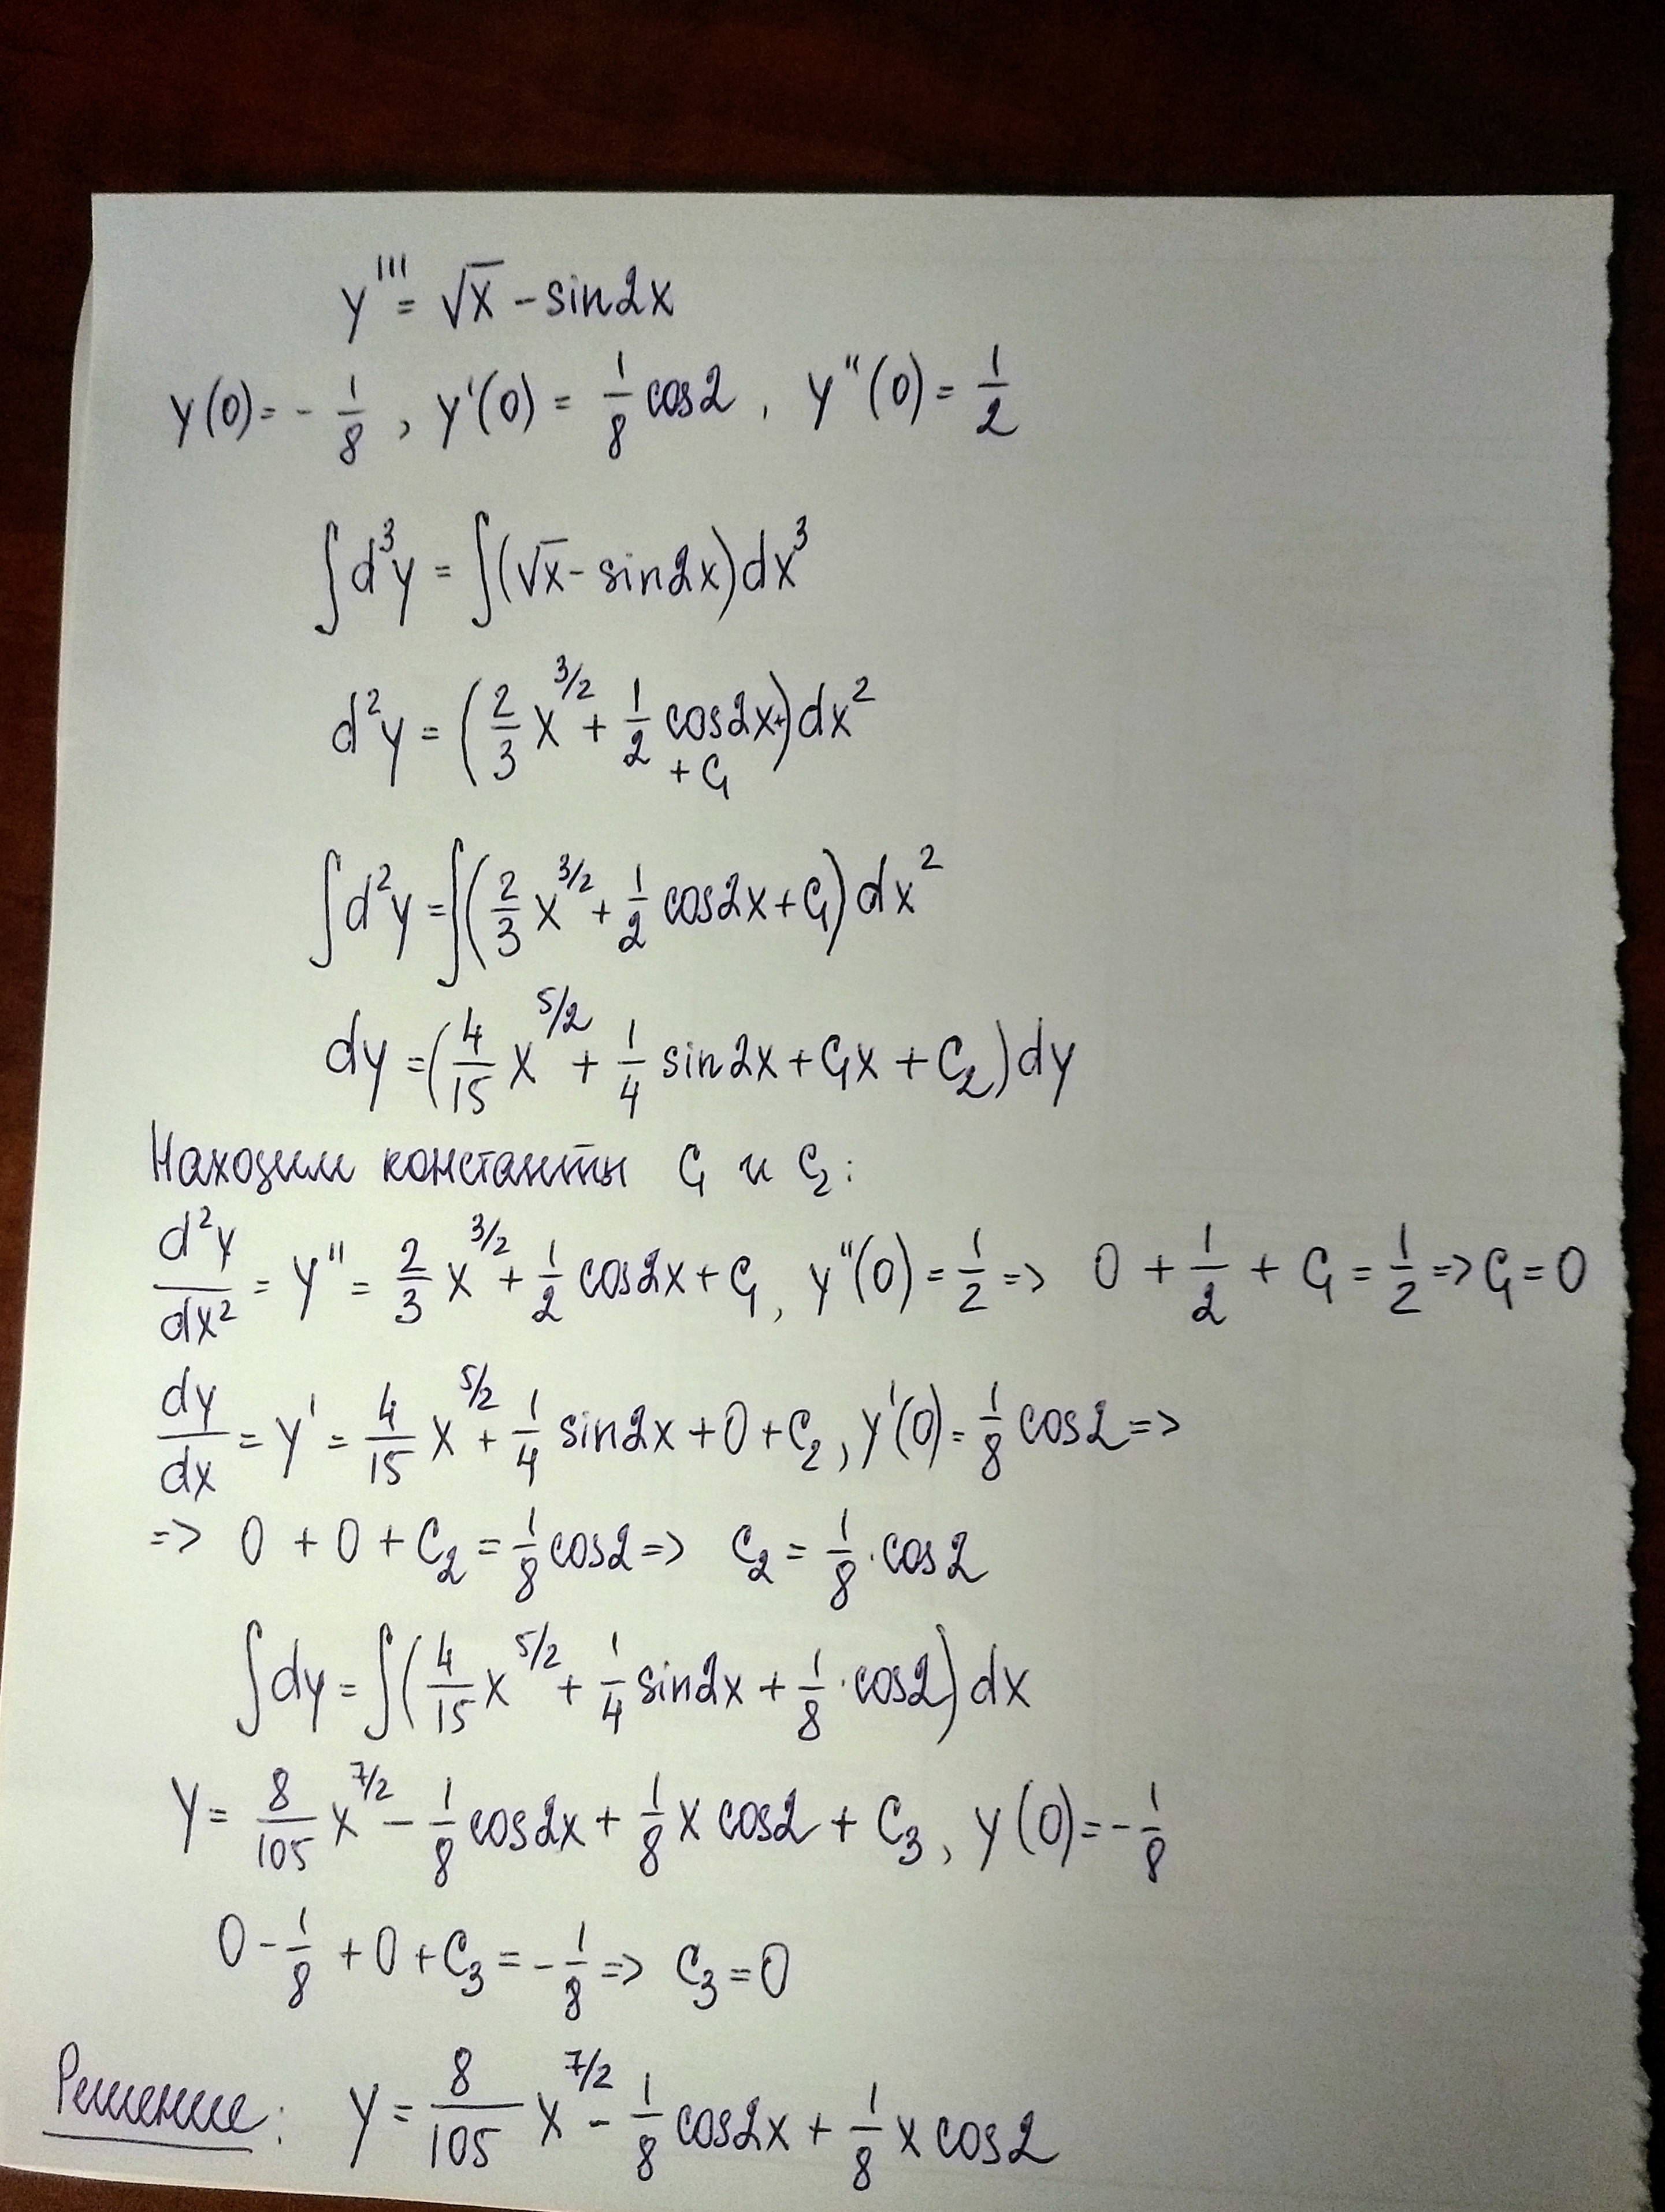 y''' = √x - sin2x
y(0) = - 1/8 , y'(0) = 1/8 cos2 , y''(0) = 1/2
∫d³y = ∫(√x - sin2x)dx³
d²y = (2/3 x^3/2 + 1/2 cos2x + C₁)dx²
∫d²y = ∫(2/3 x^3/2 + 1/2 cos2x + C₁)dx²
dy = (4/15 x^5/2 + 1/4 sin2x + C₁x + C₂)dy
Находим константы C₁ и C₂:
d²y/dx² = y'' = 2/3 x^3/2 + 1/2 cos2x + C₁, y''(0) = 1/2 => 0 + 1/2 + C₁ = 1/2 => C₁ = 0
dy/dx = y' = 4/15 x^5/2 + 1/4 sin2x + 0 + C₂, y'(0) = 1/8 cos2 =>
=> 0 + 0 + C₂ = 1/8 cos2 => C₂ = 1/8 · cos2
∫dy = ∫(4/15 x^5/2 + 1/4 sin2x + 1/8 · cos2)dx
y = 8/105 x^7/2 - 1/8 cos2x + 1/8 x cos2 + C₃, y(0) = - 1/8
0 - 1/8 + 0 + C₃ = - 1/8 => C₃ = 0
Решение: y = 8/105 x^7/2 - 1/8 cos2x + 1/8 x cos2